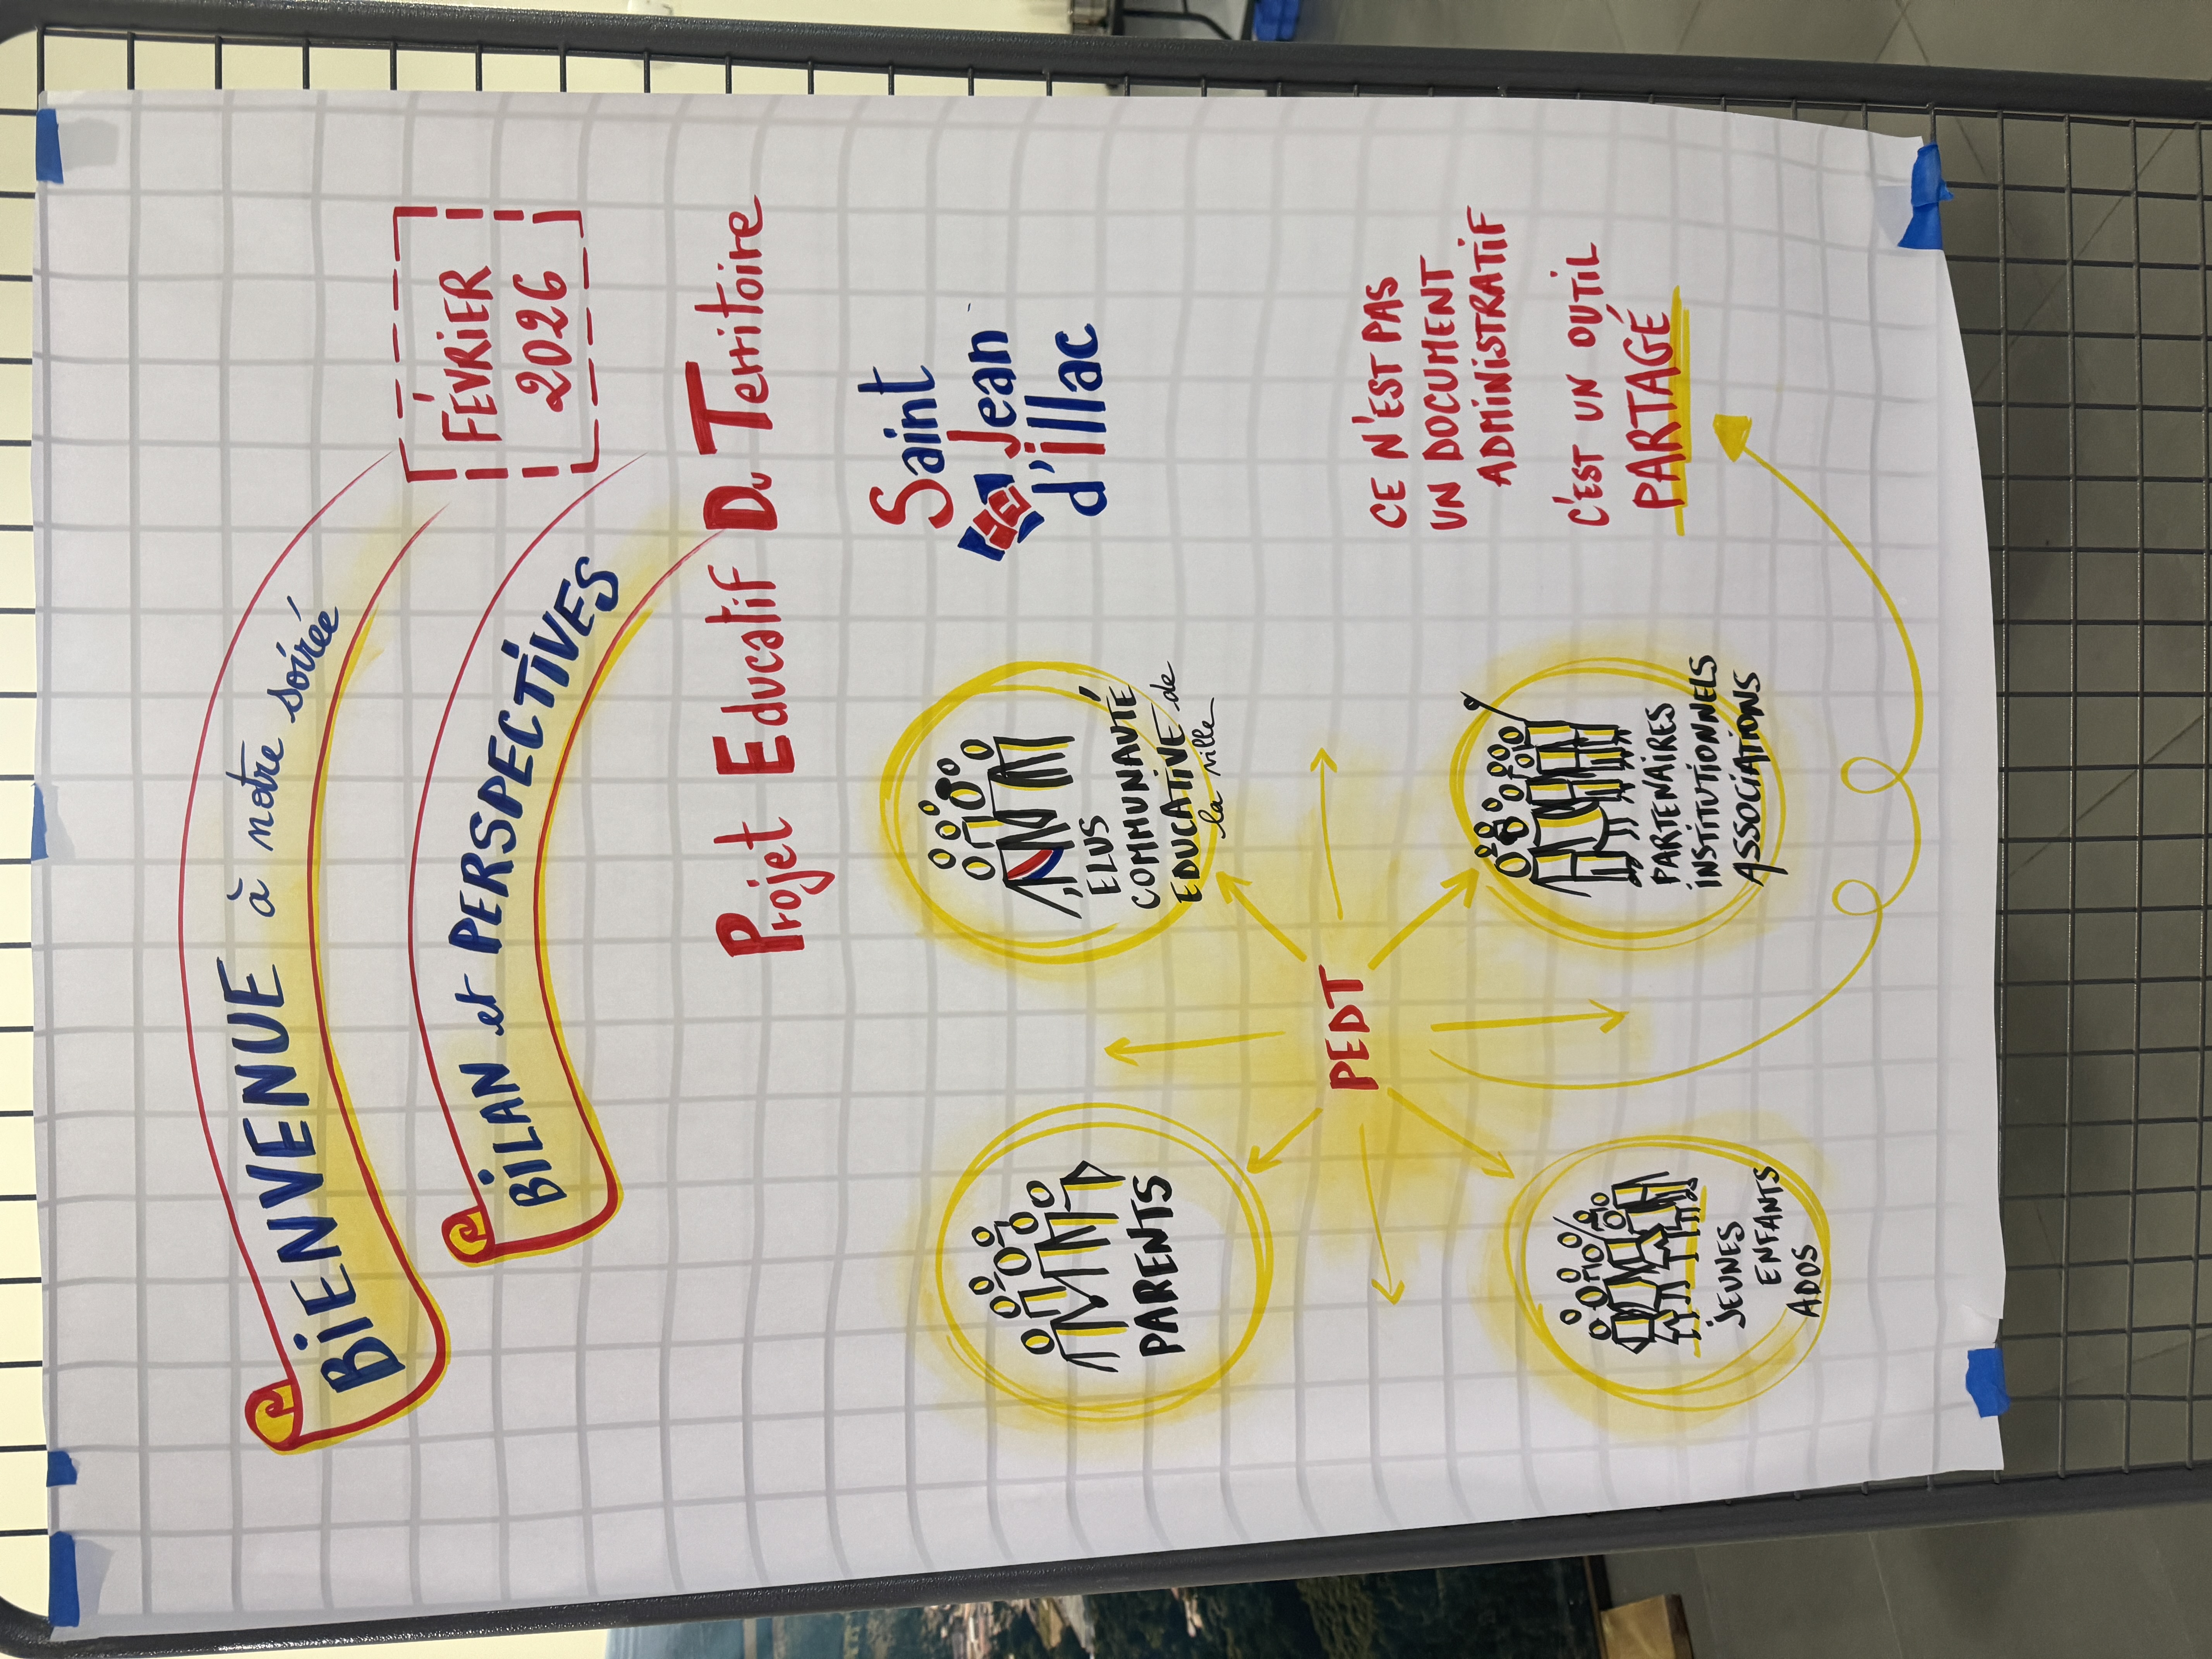 BiENVENUE à notre soirée
FÉVRiER
2026
BiLAN et PERSPECTiVES
Projet Educatif Du Territoire
Saint
Jean
d'illac
ELUS
COMMUNAUTÉ
EDUCATIVE de
la ville
PARENTS
PEDT
CE N'EST PAS
UN DOCUMENT
ADMiNiSTRATiF
C'EST UN OUTiL
PARTAGÉ
PARTENAiRES
iNSTiTUTiONNELS
ASSOCiATiONS
JEUNES
ENFANTS
ADOS